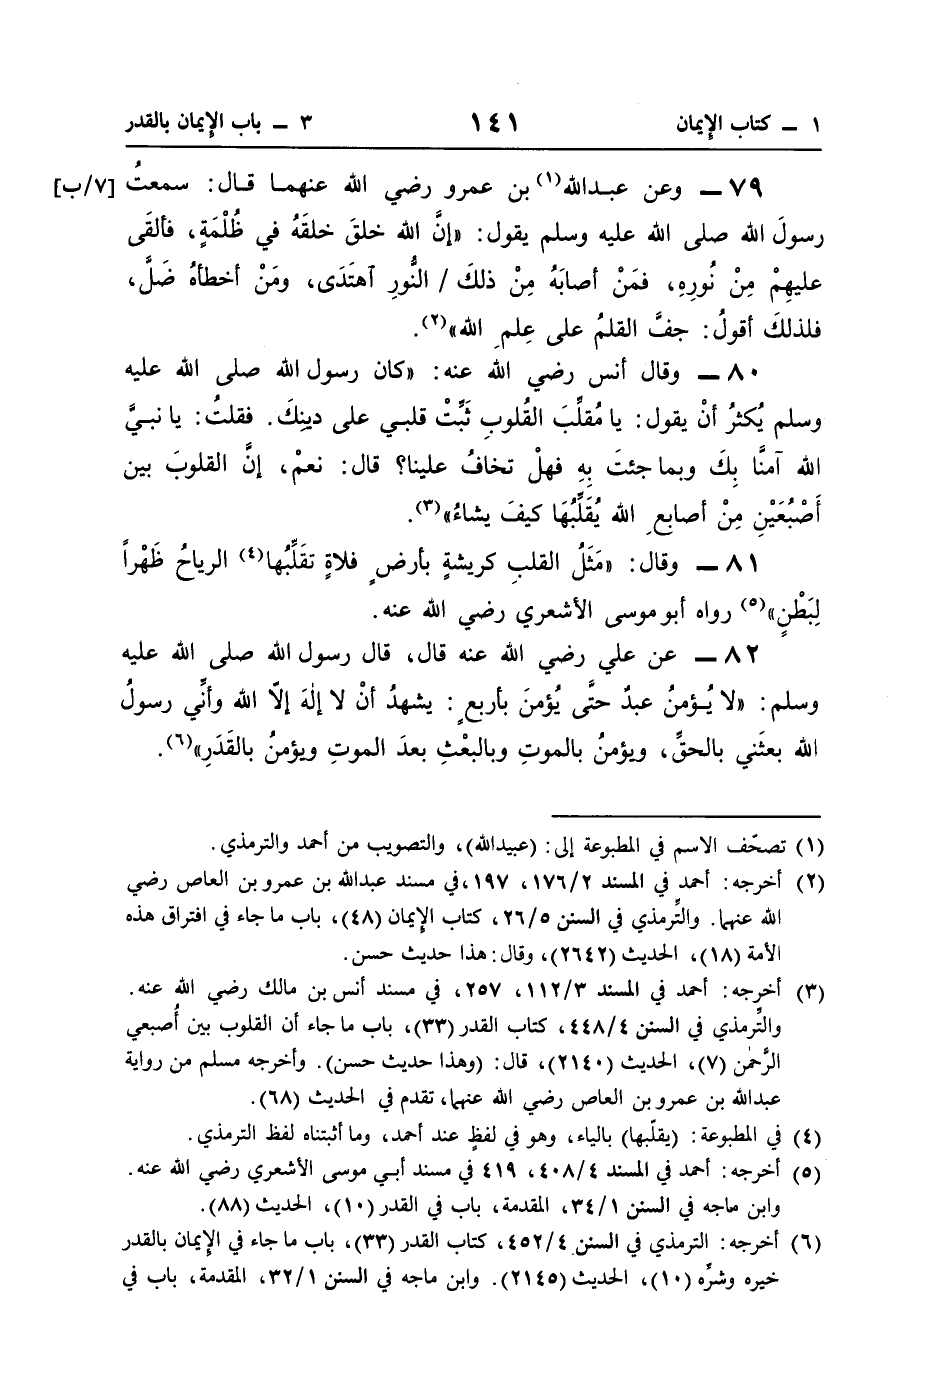 ١ ــ كتاب الإيمان ١٤١ ٣ ــ باب الإيمان بالقدر
٧٩ ــ وعن عبدالله(١) بن عمرو رضي الله عنهما قال: سمعتُ [٧/ب]
رسولَ الله صلى الله عليه وسلم يقول: «إنَّ الله خلقَ خلقَهُ في ظُلْمَةٍ، فألقَى
عليهِمْ مِنْ نُورِهِ، فمَنْ أصابَهُ مِنْ ذلكَ / النُّورِ آهتَدَى، ومَنْ أخطأهُ ضَلَّ،
فلذلكَ أقولُ: جفَّ القلمُ على عِلمِ الله»(٢).
٨٠ ــ وقال أنس رضي الله عنه: «كان رسول الله صلى الله عليه
وسلم يُكثرُ أنْ يقول: يا مُقلِّبَ القُلوبِ ثَبِّتْ قلبي على دينِكَ. فقلتُ: يا نبيَّ
الله آمنَّا بِكَ وبما جئتَ بِهِ فهلْ تخافُ علينا؟ قال: نعمْ، إنَّ القلوبَ بين
أَصْبُعَيْنِ مِنْ أصابعِ الله يُقَلِّبُهَا كيفَ يشاءُ»(٣).
٨١ ــ وقال: «مَثَلُ القلبِ كريشةٍ بأرضٍ فلاةٍ تقَلِّبُها(٤) الرياحُ ظَهْراً
لِبَطْنٍ»(٥) رواه أبو موسى الأشعري رضي الله عنه.
٨٢ ــ عن علي رضي الله عنه قال، قال رسول الله صلى الله عليه
وسلم: «لا يُؤمنُ عبدٌ حتَّى يُؤمنَ بأربعٍ: يشهدُ أنْ لا إلٰهَ إلاّ الله وأنِّي رسولُ
الله بعثَني بالحقِّ، ويؤمنُ بالموتِ وبالبعْثِ بعدَ الموتِ ويؤمنُ بالقَدَرِ»(٦).
(١) تصحّف الاسم في المطبوعة إلى: (عبيدالله)، والتصويب من أحمد والترمذي.
(٢) أخرجه: أحمد في المسند ١٧٦/٢، ١٩٧، في مسند عبدالله بن عمرو بن العاص رضي
الله عنهما. والتِّرمذي في السنن ٢٦/٥، كتاب الإيمان (٤٨)، باب ما جاء في افتراق هذه
الأمة (١٨)، الحديث (٢٦٤٢)، وقال: هذا حديث حسن.
(٣) أخرجه: أحمد في المسند ١١٢/٣، ٢٥٧، في مسند أنس بن مالك رضي الله عنه.
والتِّرمذي في السنن ٤٤٨/٤، كتاب القدر (٣٣)، باب ما جاء أن القلوب بين أُصبعي
الرَّحمٰن (٧)، الحديث (٢١٤٠)، قال: (وهذا حديث حسن). وأخرجه مسلم من رواية
عبدالله بن عمرو بن العاص رضي الله عنهما، تقدم في الحديث (٦٨).
(٤) في المطبوعة: (يقلّبها) بالياء، وهو في لفظٍ عند أحمد، وما أثبتناه لفظ الترمذي.
(٥) أخرجه: أحمد في المسند ٤٠٨/٤، ٤١٩ في مسند أبي موسى الأشعري رضي الله عنه.
وابن ماجه في السنن ٣٤/١، المقدمة، باب في القدر (١٠)، الحديث (٨٨).
(٦) أخرجه: الترمذي في السنن ٤٥٢/٤، كتاب القدر (٣٣)، باب ما جاء في الإيمان بالقدر
خيره وشرِّه (١٠)، الحديث (٢١٤٥). وابن ماجه في السنن ٣٢/١، المقدمة، باب في